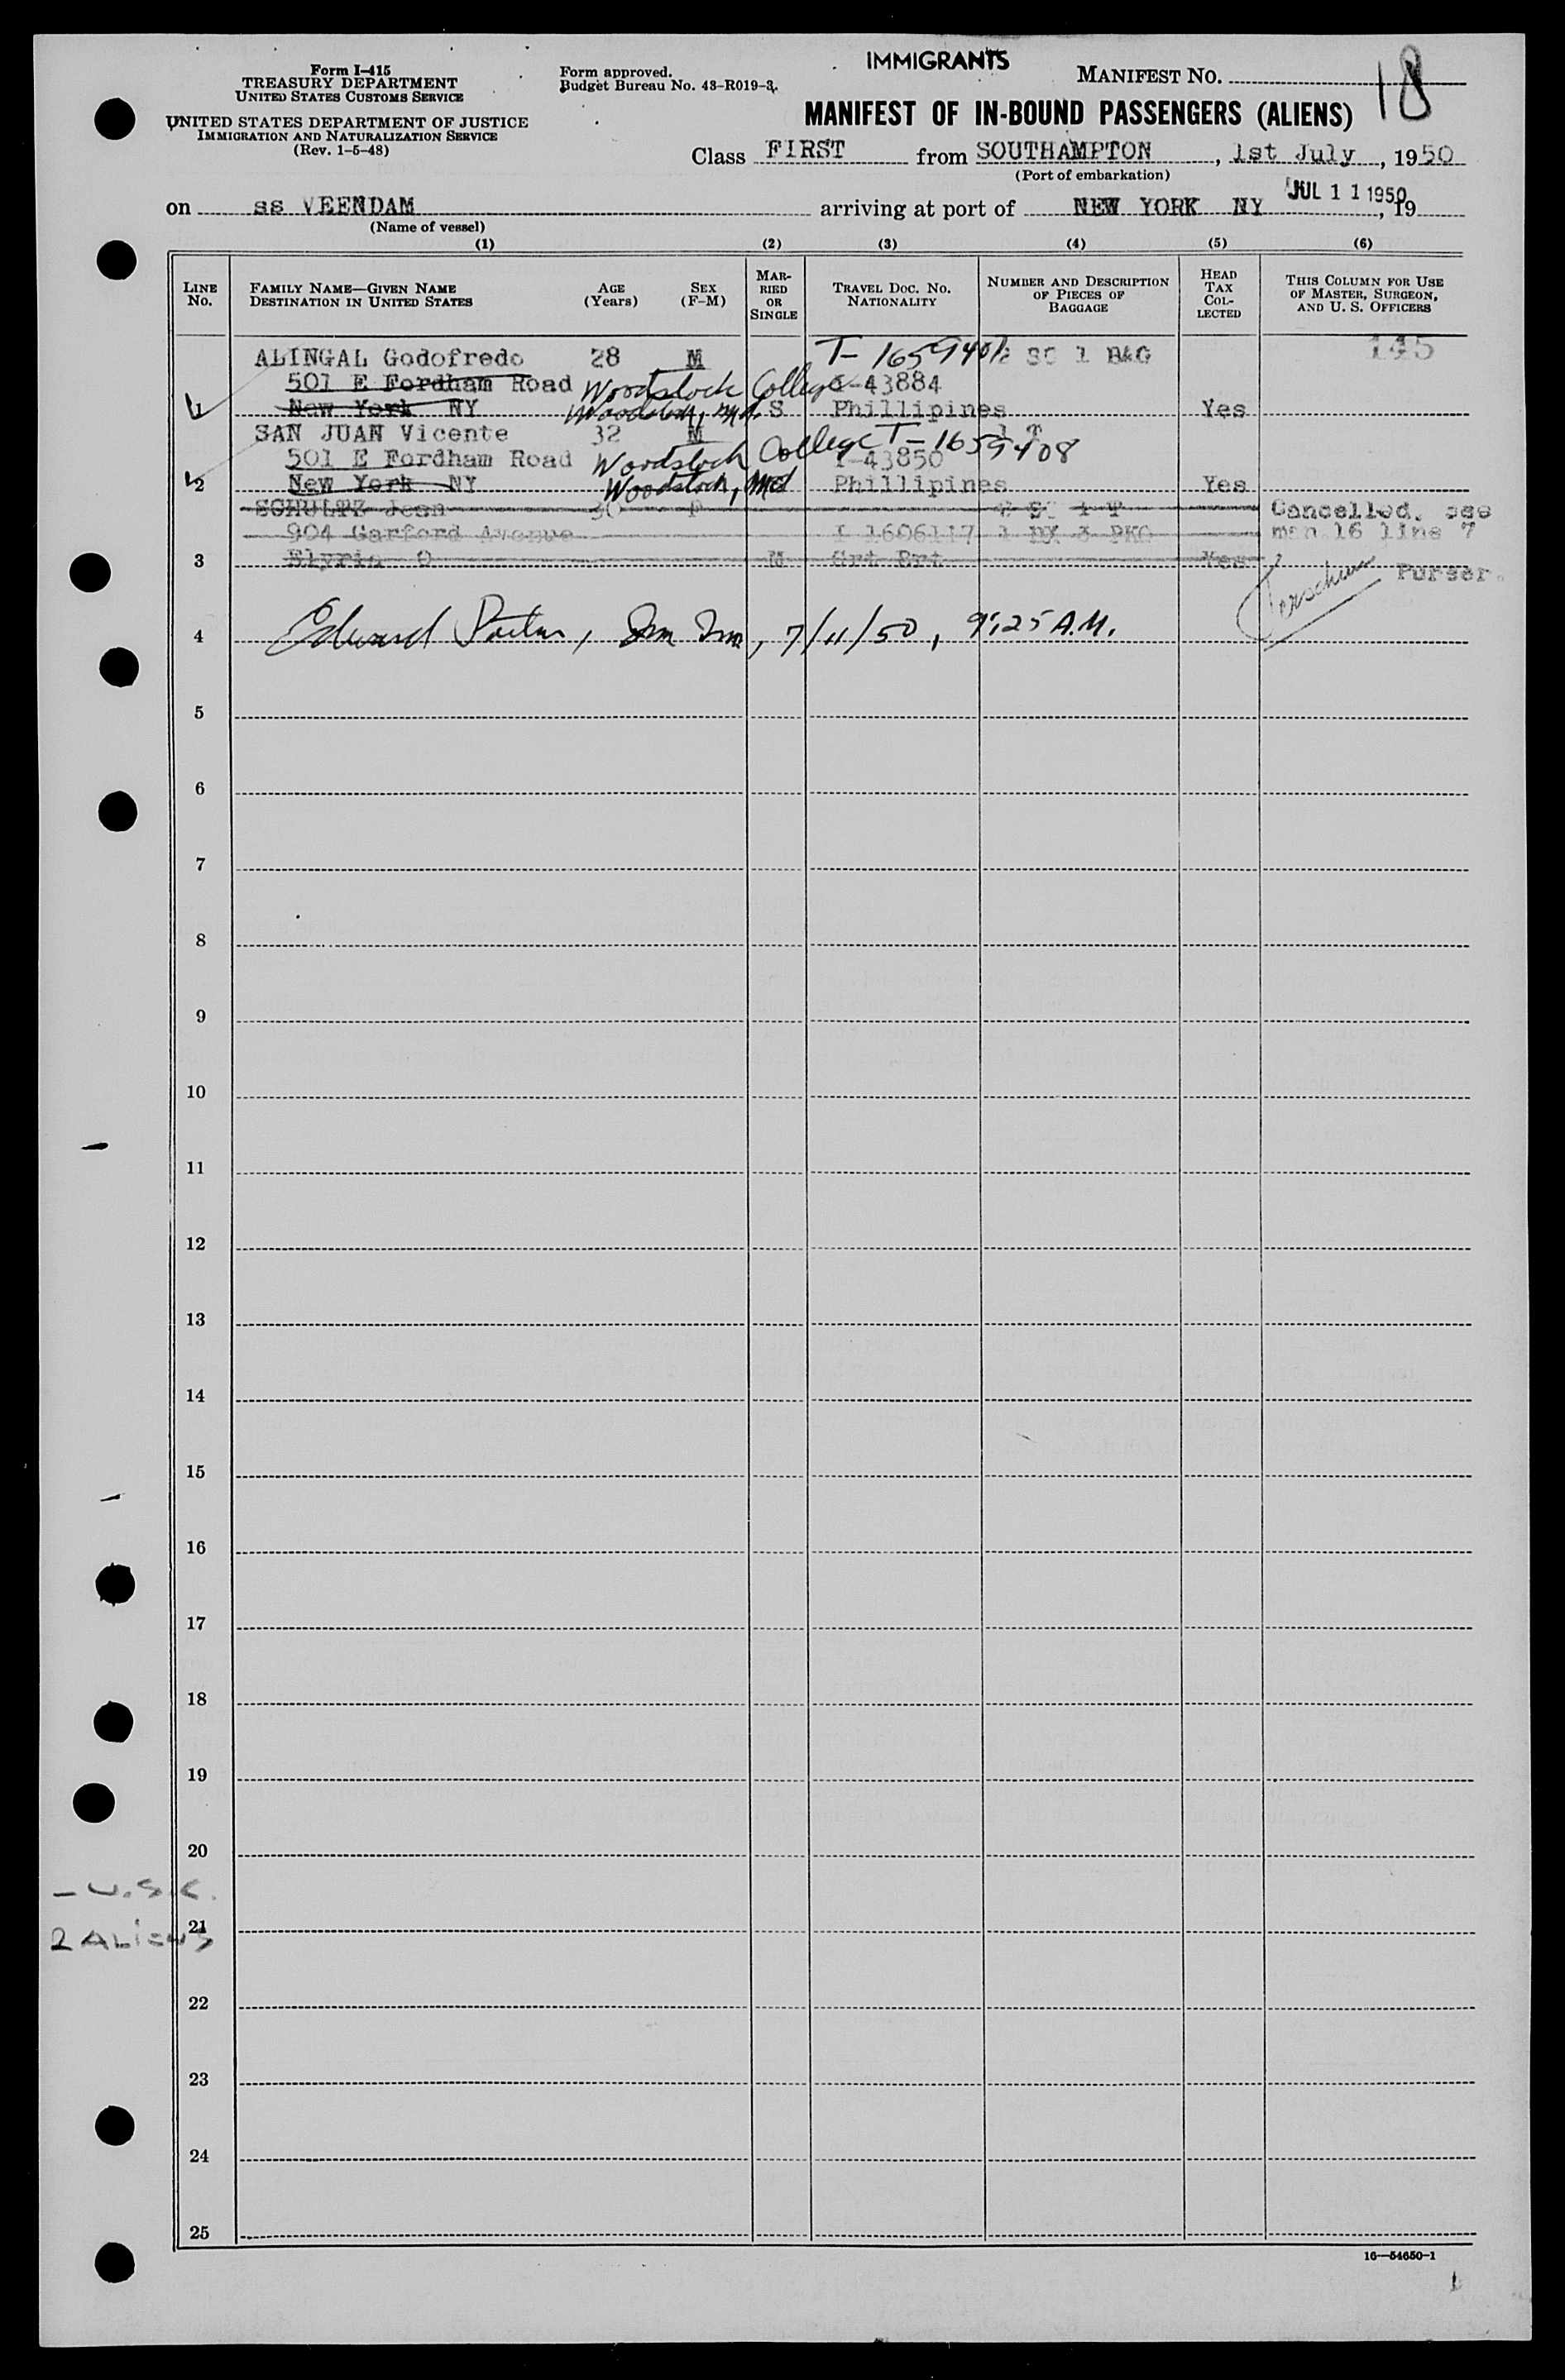 Form I-415
TREASURY DEPARTMENT
UNITED STATES CUSTOMS SERVICE
UNITED STATES DEPARTMENT OF JUSTICE
IMMIGRATION AND NATURALIZATION SERVICE
(Rev. 1-5-48)
Form approved.
Budget Bureau No. 43-R019-3.
IMMIGRANTS
MANIFEST NO. 18
MANIFEST OF IN-BOUND PASSENGERS (ALIENS)
Class FIRST from SOUTHAMPTON, 1st July, 1950
(Port of embarkation)
on ss VEENDAM arriving at port of NEW YORK NY JUL 11 1950, 19
(Name of vessel)
(1) (2) (3) (4) (5) (6)
LINE NO.
FAMILY NAME—GIVEN NAME
DESTINATION IN UNITED STATES
AGE (Years)
SEX (F-M)
MARRIED OR SINGLE
TRAVEL DOC. NO.
NATIONALITY
NUMBER AND DESCRIPTION OF PIECES OF BAGGAGE
HEAD TAX COLLECTED
THIS COLUMN FOR USE OF MASTER, SURGEON, AND U. S. OFFICERS
ALINGAL Godofredo 28 M T-1659401 SC 1 BAG 145
501 E Fordham Road Woodstock College I-43884
1 New York NY Woodstock, Md. S Phillipines Yes
SAN JUAN Vicente 32 M 1 T
501 E Fordham Road Woodstock College T-1659408 I-43850
2 New York NY Woodstock, Md Phillipines Yes
SCHULTZ Jean 30 F 2 SC 1 T Cancelled. see
904 Garford Avenue I 1606117 1 BX 3 PKG man 16 line 7
3 Elyria O M Grt Brt Yes
Purser.
4 Edward, 7/11/50, 9:25 A.M.
5
6
7
8
9
10
11
12
13
14
15
16
17
18
19
20
- U.S.C.
21
2 ALiENS
22
23
24
25
16—54650-1